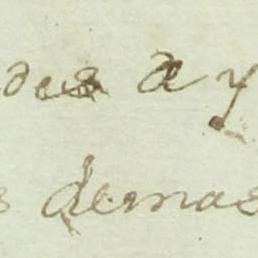 des a y
s demas